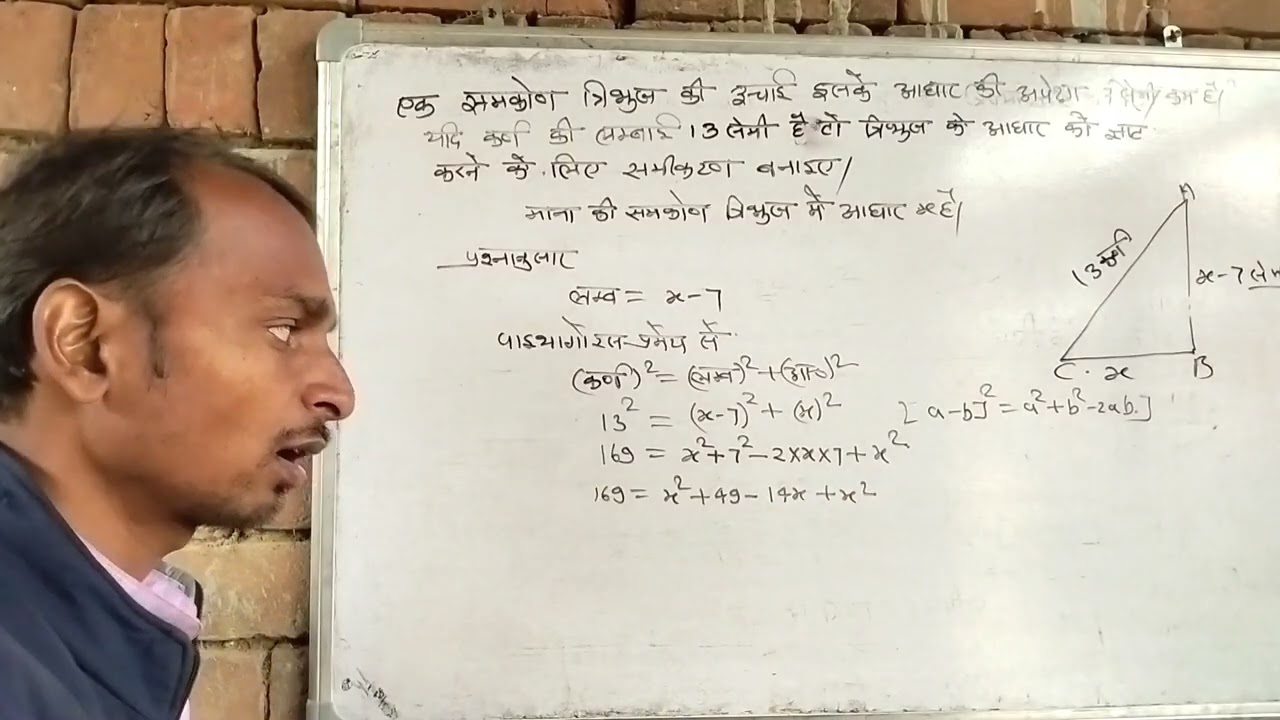 एक समकोण त्रिभुज की उचाई इसके आधार की अपेक्षा 7 सेमी कम है।
यदि कर्ण की लम्बाई 13 सेमी है तो त्रिभुज के आधार को ज्ञात
करने के लिए समीकरण बनाइए।
माना की समकोण त्रिभुज में आधार x है।
प्रश्नानुसार
लम्ब = x-7
पाइथागोरस-प्रमेय से
(कर्ण)² = (लम्ब)² + (आ०)²
13² = (x-7)² + (x)²
[a-b]² = a²+b²-2ab.]
169 = x²+7²-2×x×7+x²
169 = x²+49-14x+x²
A
13 कर्ण
x-7 सेमी
C. x B